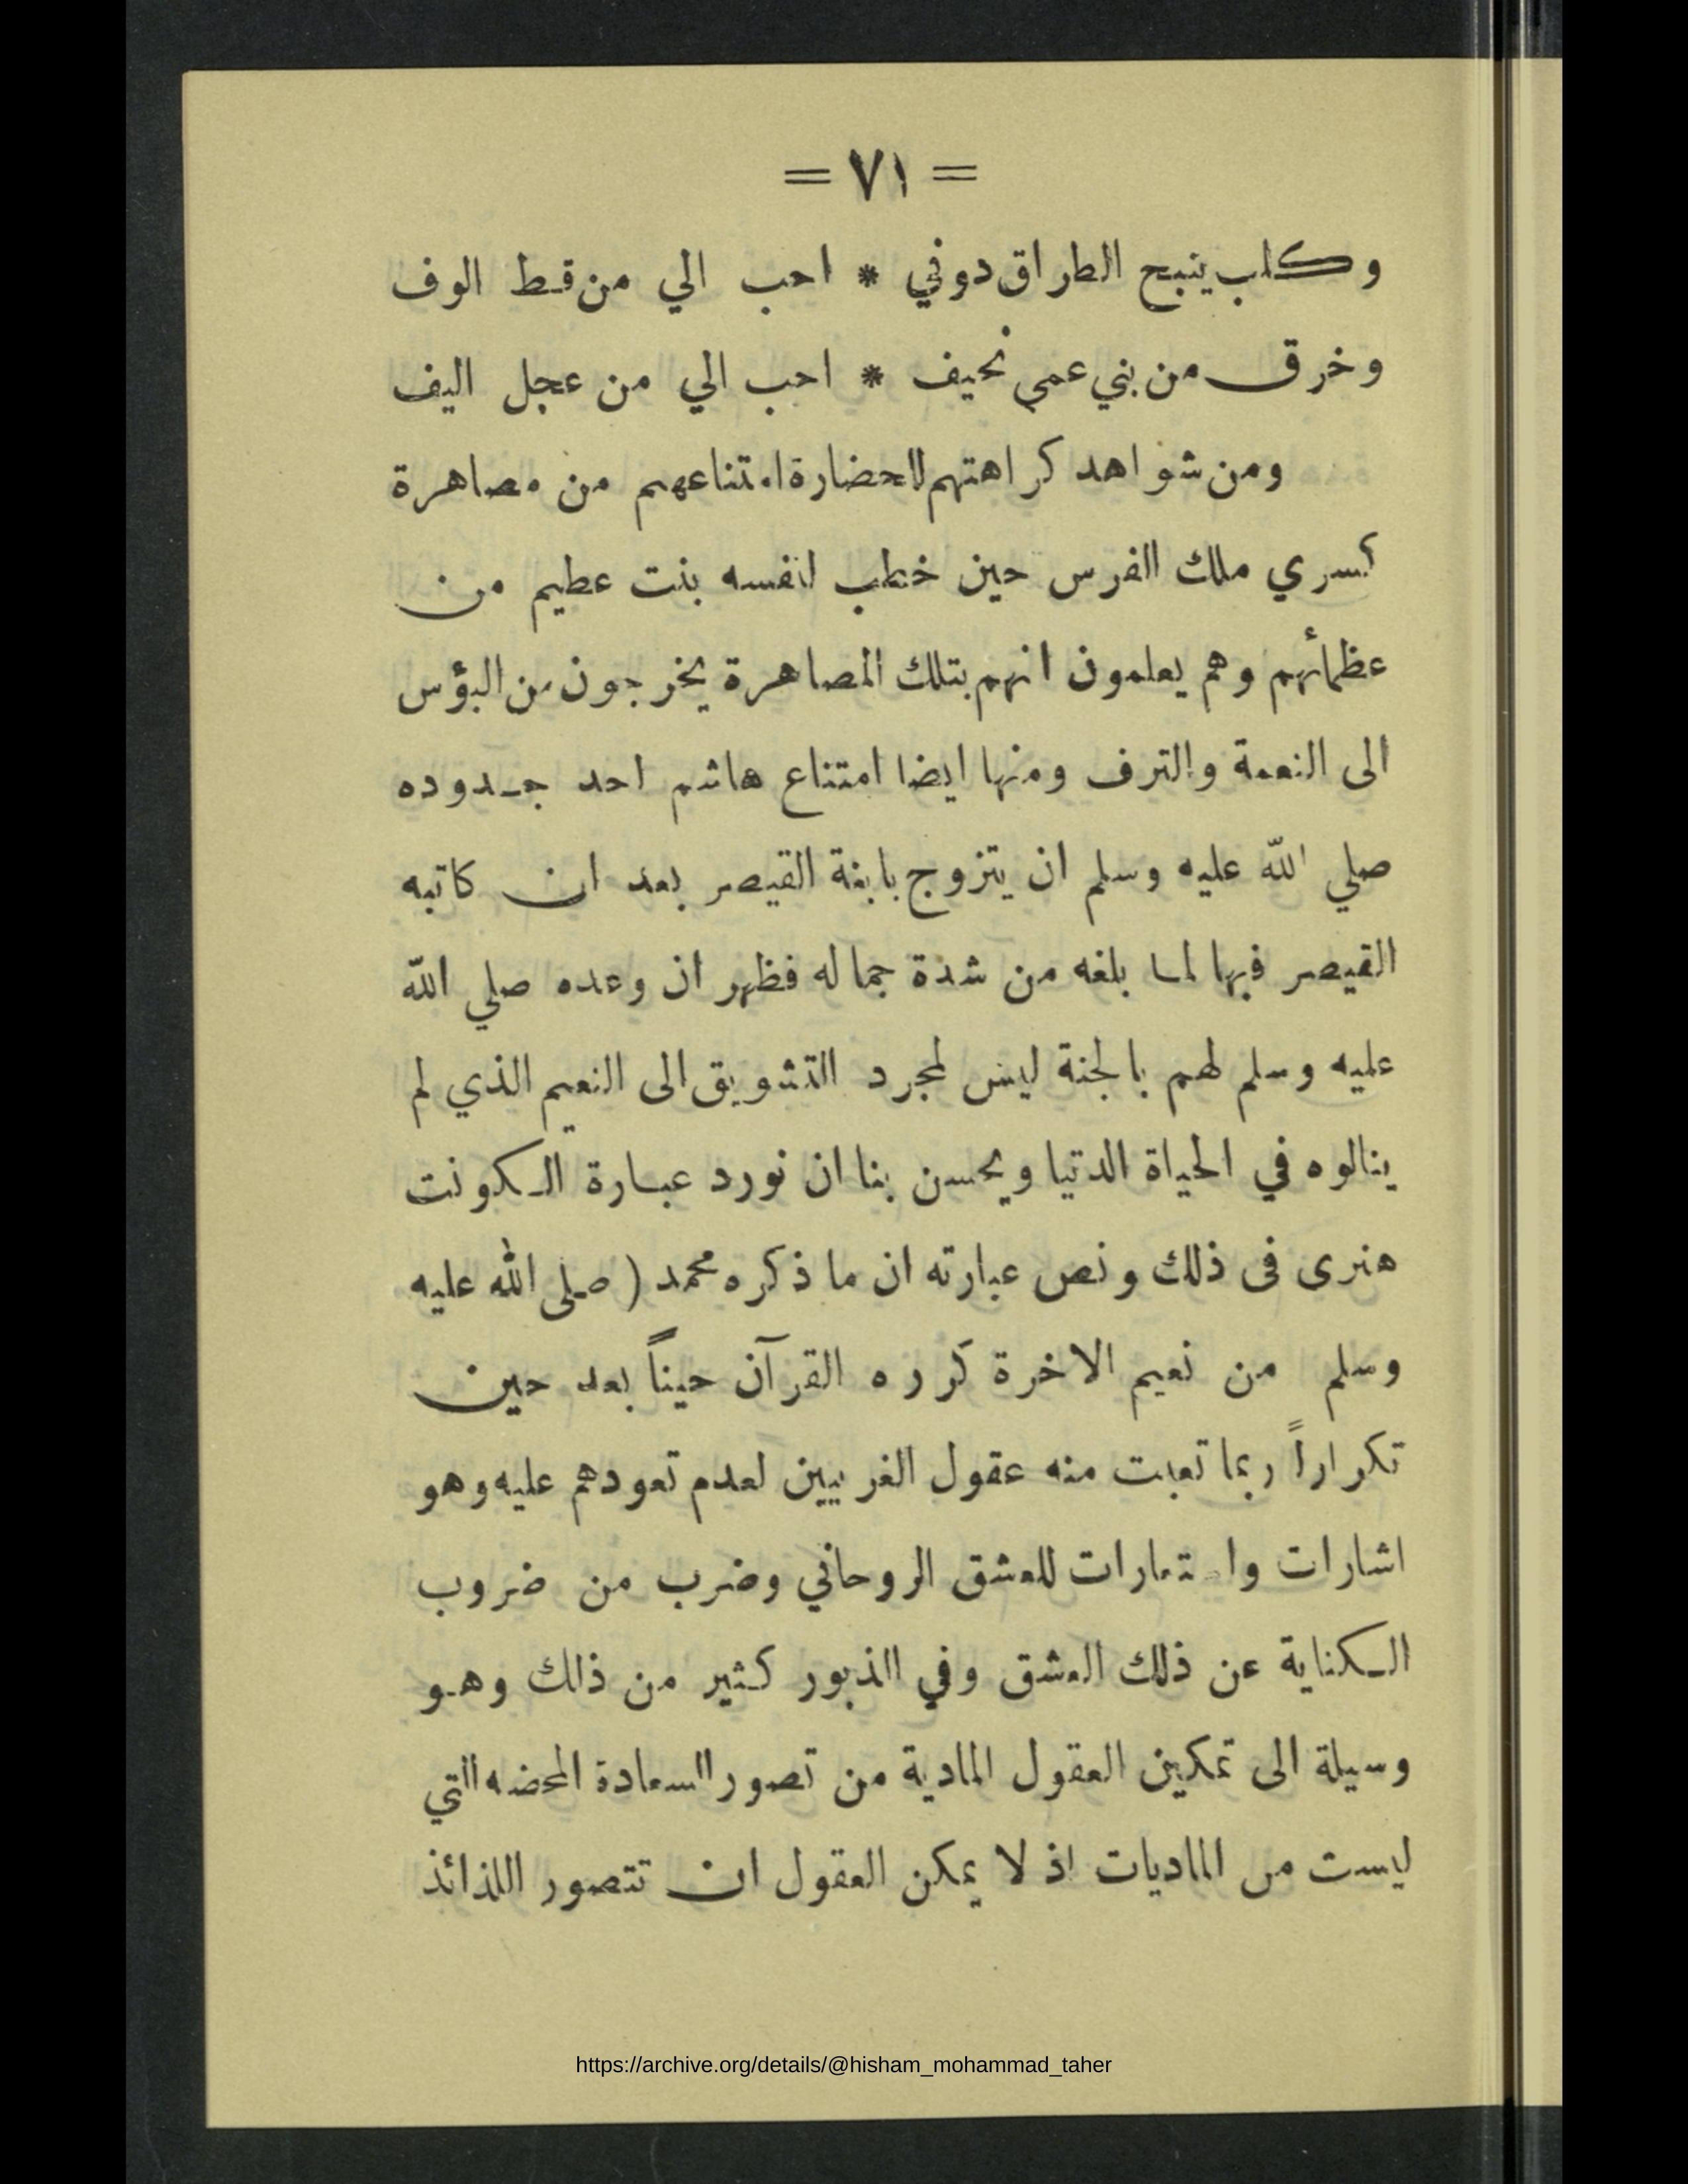 = ٧١ =
وكلب ينبح الطراق دوني * احب الي من قط الوف
وخرق من بني عمي نحيف * احب الي من عجل اليف
ومن شواهد كراهتهم للحضارة امتناعهم من مصاهرة
كسري ملك الفرس حين خطب لنفسه بنت عظيم من
عظمائهم وهم يعلمون انهم بتلك المصاهرة يخرجون من البؤس
الى النعمة والترف ومنها ايضا امتناع هاشم احد جدوده
صلي الله عليه وسلم ان يتزوج بابنة القيصر بعد ان كاتبه
القيصر فيها لما بلغه من شدة جماله فظهر ان وعده صلي الله
عليه وسلم لهم بالجنة ليس لمجرد التشويق الى النعيم الذي لم
ينالوه في الحياة الدنيا ويحسن بنا ان نورد عبارة الكونت
هنرى فى ذلك ونص عبارته ان ما ذكره محمد ( صلى الله عليه
وسلم من نعيم الاخرة كرره القرآن حيناً بعد حين
تكراراً ربما تعبت منه عقول الغربيين لعدم تعودهم عليه وهو
اشارات واستعارات للعشق الروحاني وضرب من ضروب
الكناية عن ذلك العشق وفي الذبور كثير من ذلك وهو
وسيلة الى تمكين العقول المادية من تصور السعادة المحضه التي
ليست من الماديات اذ لا يمكن العقول ان تتصور اللذائذ
https://archive.org/details/@hisham_mohammad_taher